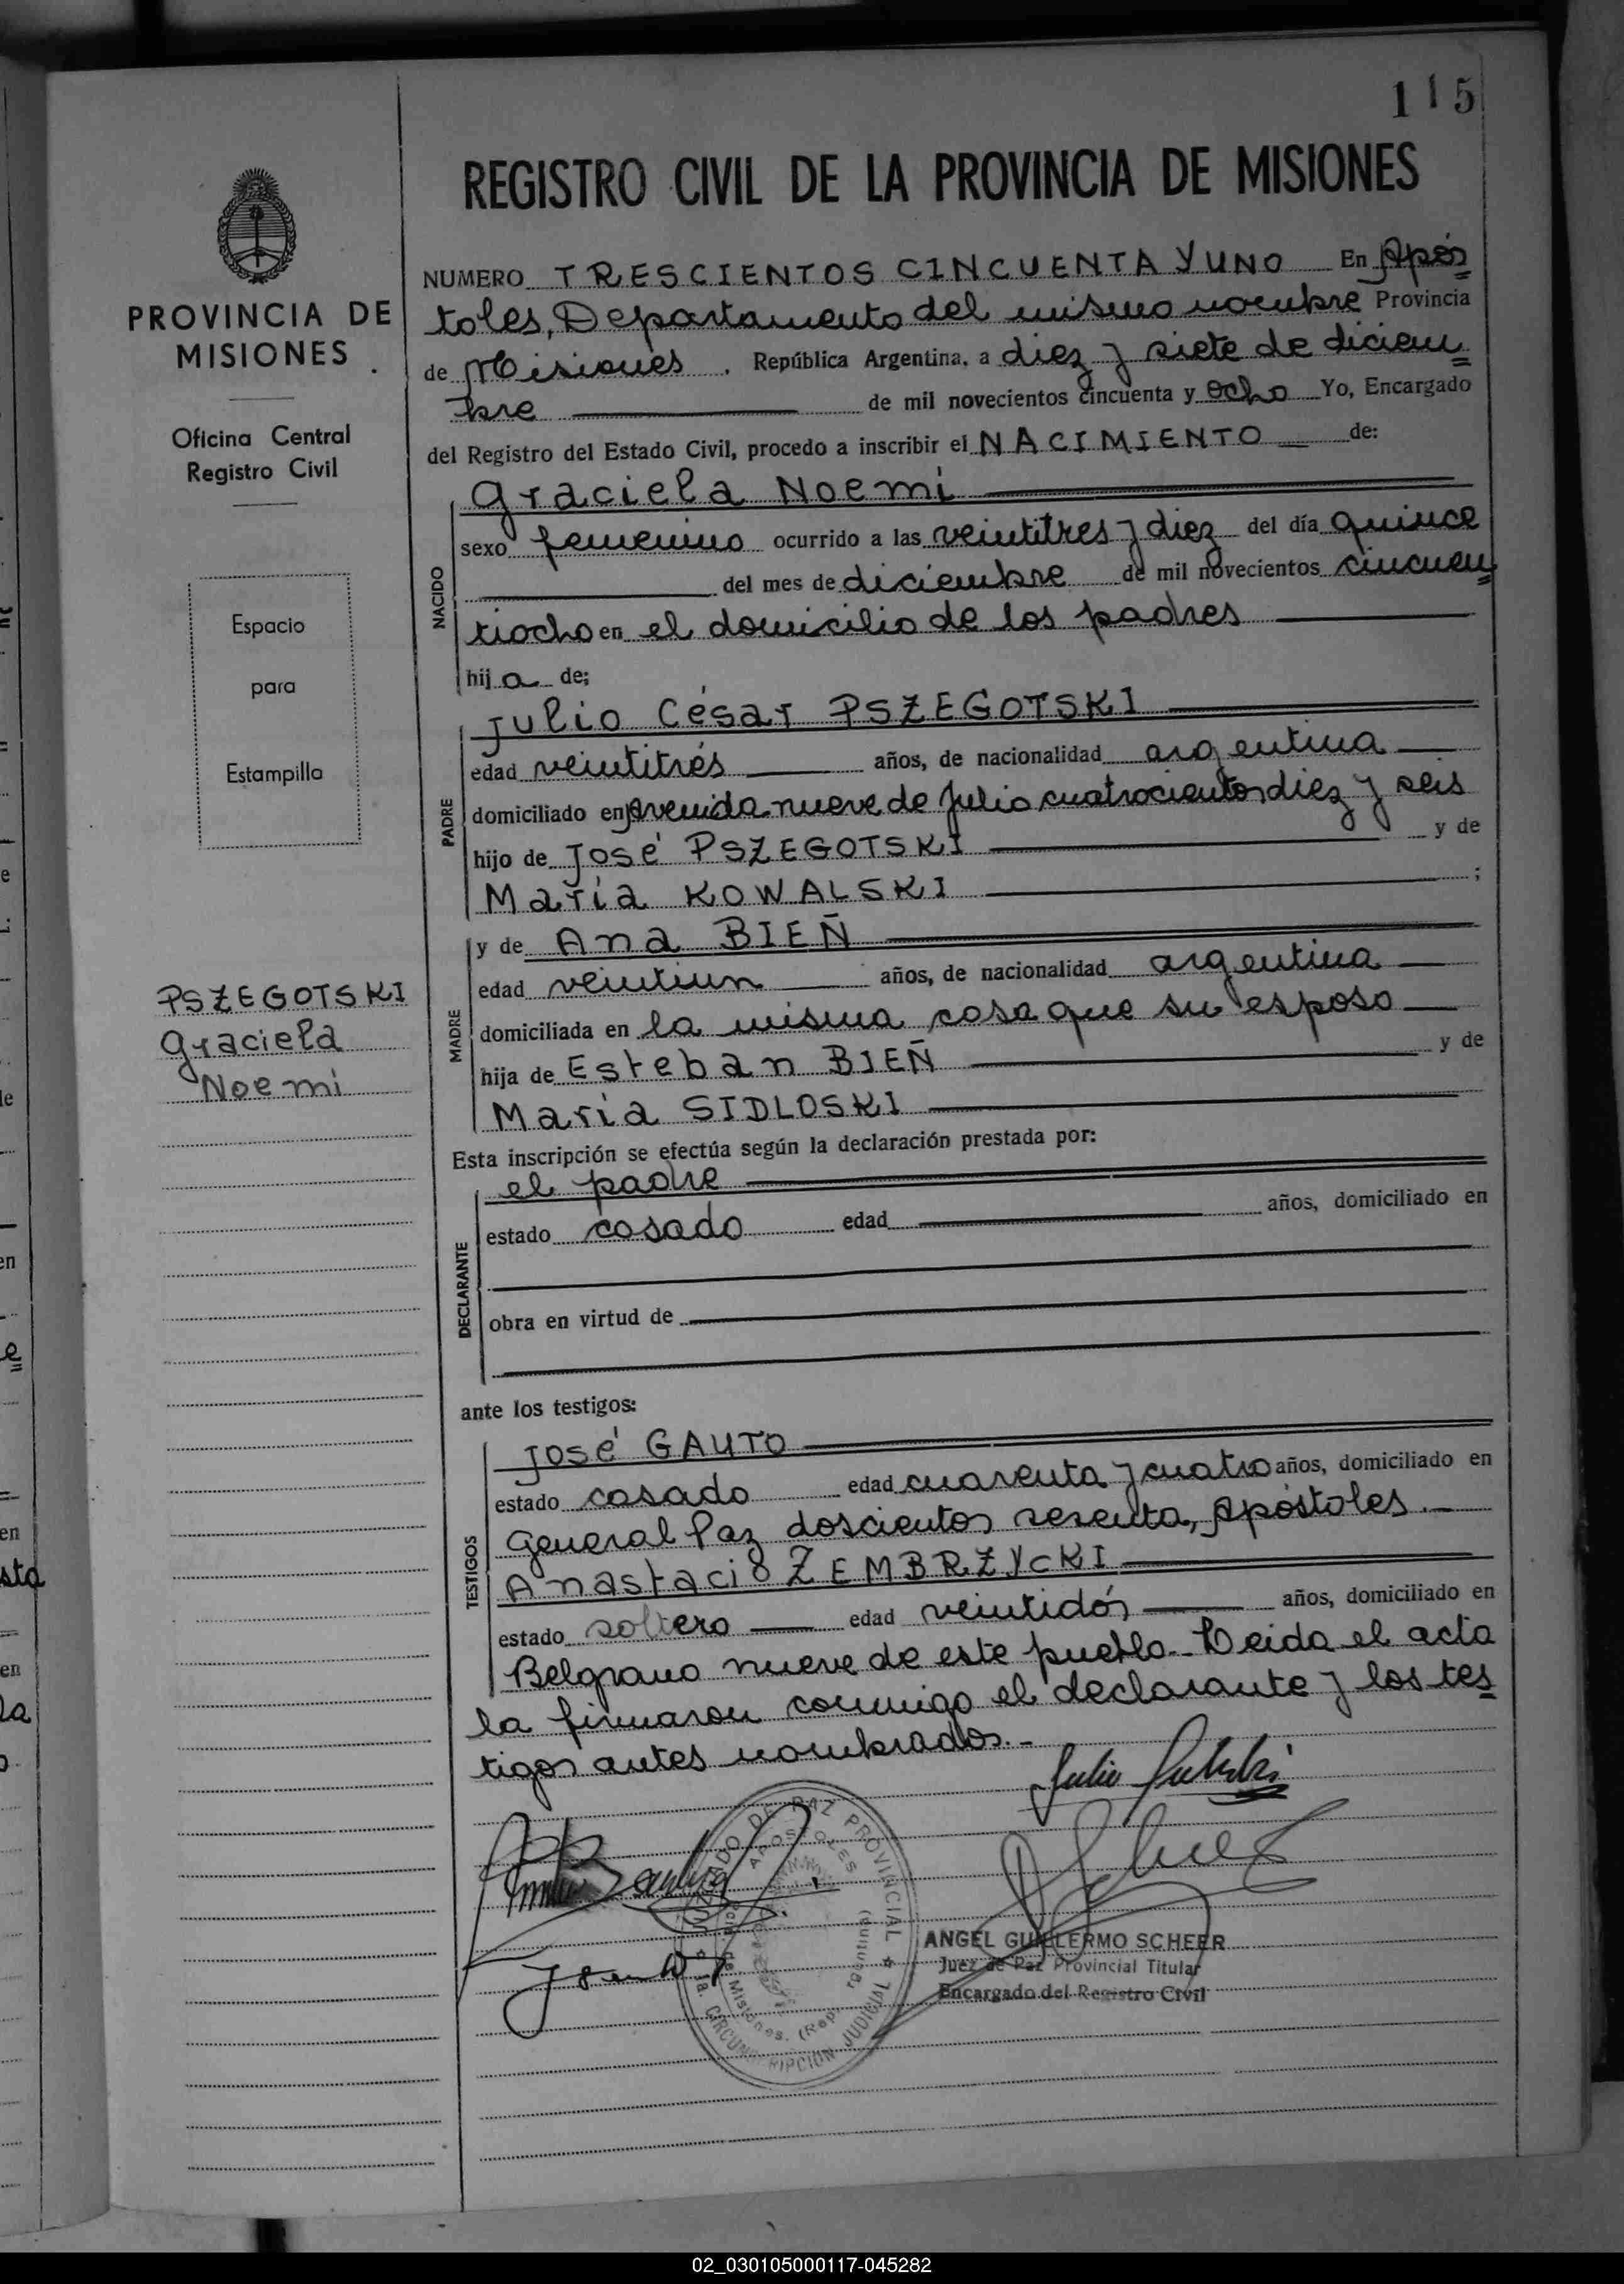 115
REGISTRO CIVIL DE LA PROVINCIA DE MISIONES
PROVINCIA DE
MISIONES
Oficina Central
Registro Civil
Espacio
para
Estampilla
PSZEGOTSKI
Graciela
Noemi
NUMERO TRESCIENTOS CINCUENTA Y UNO En Após=
toles, Departamento del mismo nombre Provincia
de Misiones, República Argentina, a diez y siete de diciem=
bre de mil novecientos cincuenta y ocho Yo, Encargado
del Registro del Estado Civil, procedo a inscribir el NACIMIENTO de:
NACIDO
Graciela Noemi
sexo femenino ocurrido a las veintitres y diez del día quince
del mes de diciembre de mil novecientos cincuen=
tiocho en el domicilio de los padres
hija de;
PADRE
Julio César PSZEGOTSKI
edad veintitrés años, de nacionalidad argentina
domiciliado en Avenida nueve de Julio cuatrocientos diez y seis
hijo de José PSZEGOTSKI y de
María KOWALSKI ;
MADRE
y de Ana BIEÑ
edad veintiun años, de nacionalidad argentina
domiciliada en la misma casa que su esposo
hija de Esteban BIEÑ y de
María SIDLOSKI
Esta inscripción se efectúa según la declaración prestada por:
DECLARANTE
el padre
estado casado edad años, domiciliado en
obra en virtud de
ante los testigos:
TESTIGOS
José GAUTO
estado casado edad cuarenta y cuatro años, domiciliado en
General Paz doscientos sesenta, Apóstoles.-
Anastacio ZEMBRZYCKI
estado soltero edad veintidós años, domiciliado en
Belgrano nueve de este pueblo.- Leida el acta
la firmaron conmigo el declarante y los tes=
tigos antes nombrados.-
Julio
JUZGADO DE PAZ PROVINCIAL
APOSTOLES
CIRCUNSCRIPCION JUDICIAL
ANGEL GUILLERMO SCHEER
Juez de Paz Provincial Titular
Encargado del Registro Civil
02_030105000117-045282